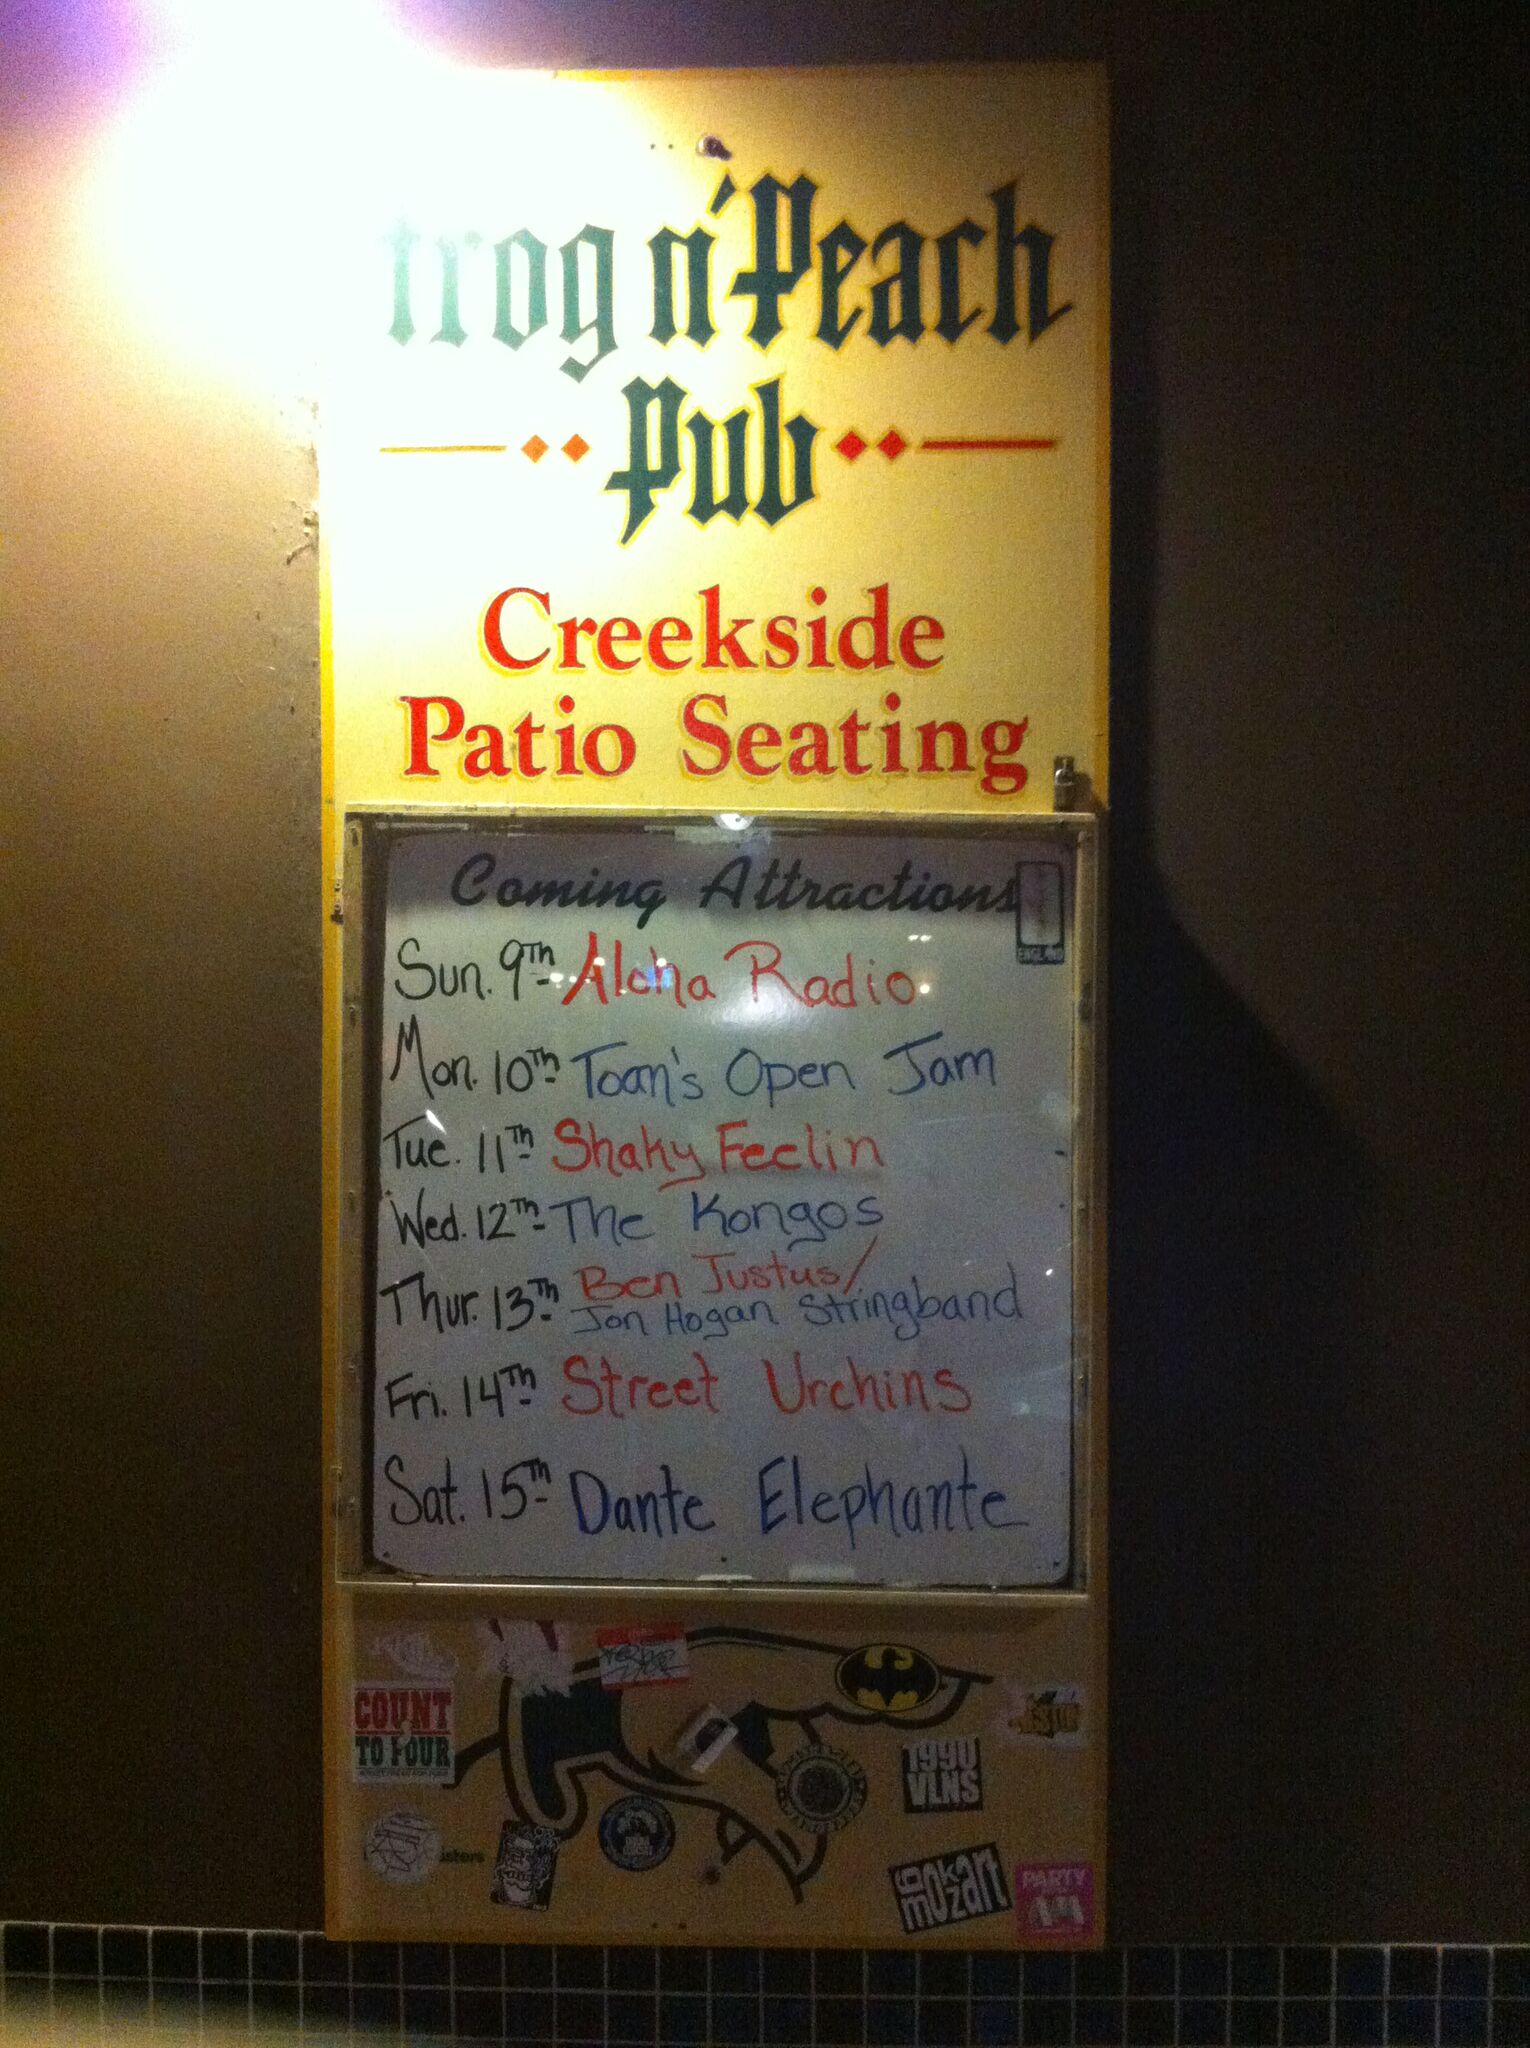 frog n' Peach
Pub
Creekside
Patio Seating
Coming Attractions
ENGLAND
Sun. 9Th- Aloha Radio
Mon. 10Th- Toan's Open Jam
Tue. 11Th- Shaky Feelin
Wed. 12Th- The Kongos
Thur. 13Th- Ben Justus/
Jon Hogan Stringband
Fri. 14Th- Street Urchins
Sat. 15Th- Dante Elephante
COUNT
TO FOUR
1990
VLNS
PARTY